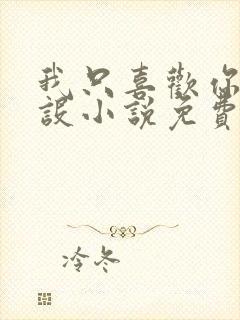 我只喜歡你
設小說免費
冷冬